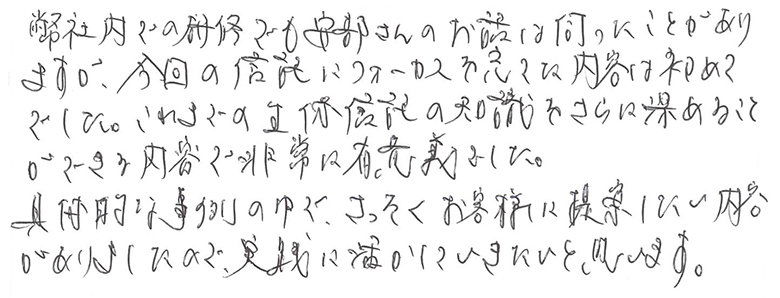 弊社内での研修でも安部さんのお話は伺ったことがあり
ますが、今回の信託にフォーカスを充てた内容は初めて
でした。これまでの生保信託の知識をさらに深めること
ができる内容で非常に有意義でした。
具体的な事例の中で、さっそくお客様に提案したい内容
がありましたので、実践に活かしていきたいと思います。